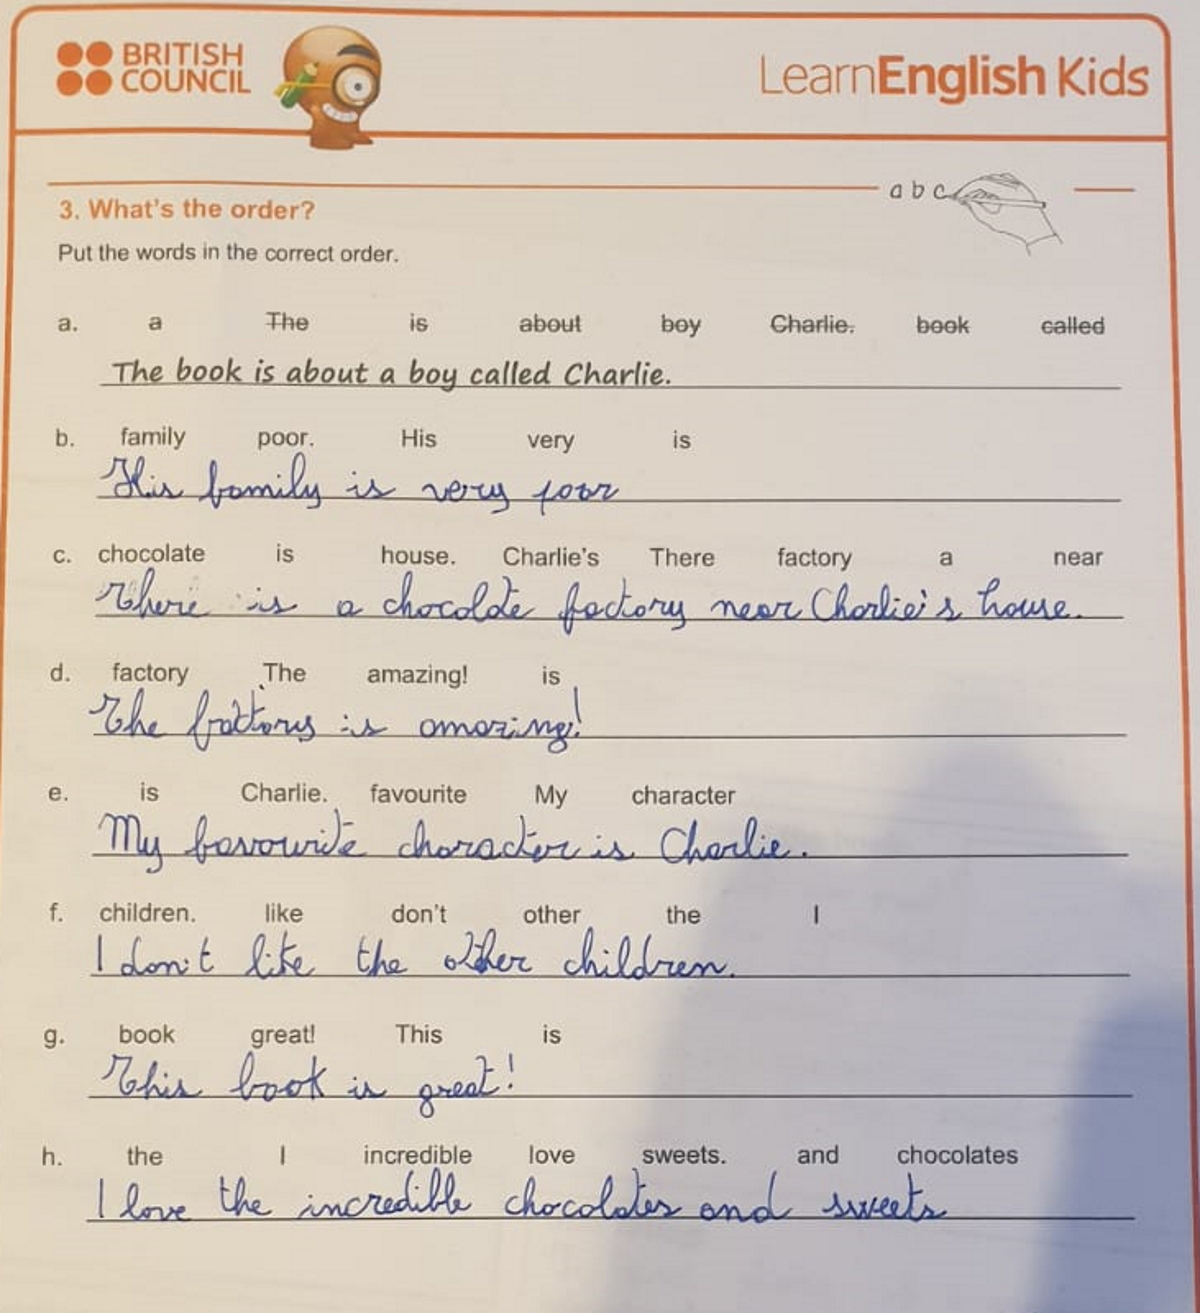 BRITISH COUNCIL LearnEnglish Kids
a b c
3. What's the order?
Put the words in the correct order.
a. a The is about boy Charlie. book called
The book is about a boy called Charlie.
b. family poor. His very is
His family is very poor
c. chocolate is house. Charlie's There factory a near
There is a chocolate factory near Charlie's house.
d. factory The amazing! is
The factory is amazing!
e. is Charlie. favourite My character
My favourite character is Charlie.
f. children. like don't other the I
I don't like the other children.
g. book great! This is
This book is great!
h. the I incredible love sweets. and chocolates
I love the incredible chocolates and sweets